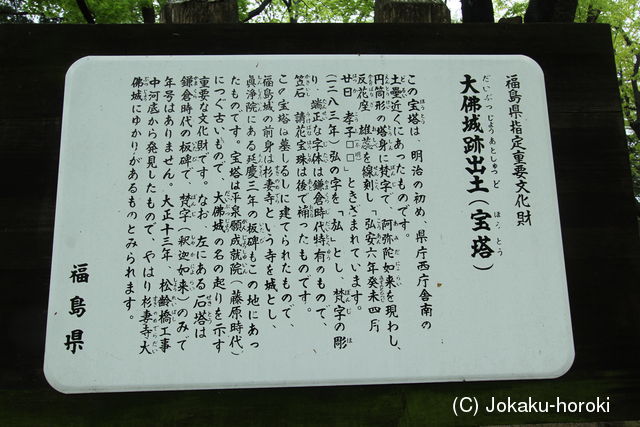 福島県指定重要文化財
大佛城跡出土(宝塔)
この宝塔は、明治の初め、県庁西庁舎南の
土塁近くにあったものです。
円筒形の塔身に梵字で、阿弥陀如来を現わし、
反花座、雄蕊を線刻し「弘安六年癸未四月
廿日 孝子□□」ときざまれています。
(一二八三年)弘の字を「𢎞」とし、梵字の彫
り、端正な字体は鎌倉時代特有のもので、
笠石、請花宝珠は後で補ったものです。
この宝塔は墓しるしに建てられたもので、
福島城の前身は杉妻寺という寺を城とし、
眞浄院にある延慶三年の板碑もこの地にあっ
たものです。宝塔は平泉願成就院(藤原時代)
につぐ古いもので、大佛城の名の起りを示す
重要な文化財です。なお、左にある石塔は
鎌倉時代の板碑で、梵字(釈迦如来)のみで
年号はありません。大正十三年、松齢橋工事
中河底から発見したもので、やはり杉妻寺大
佛城にゆかりがあるものとみられます。
福島県
(C) Jokaku-horoki